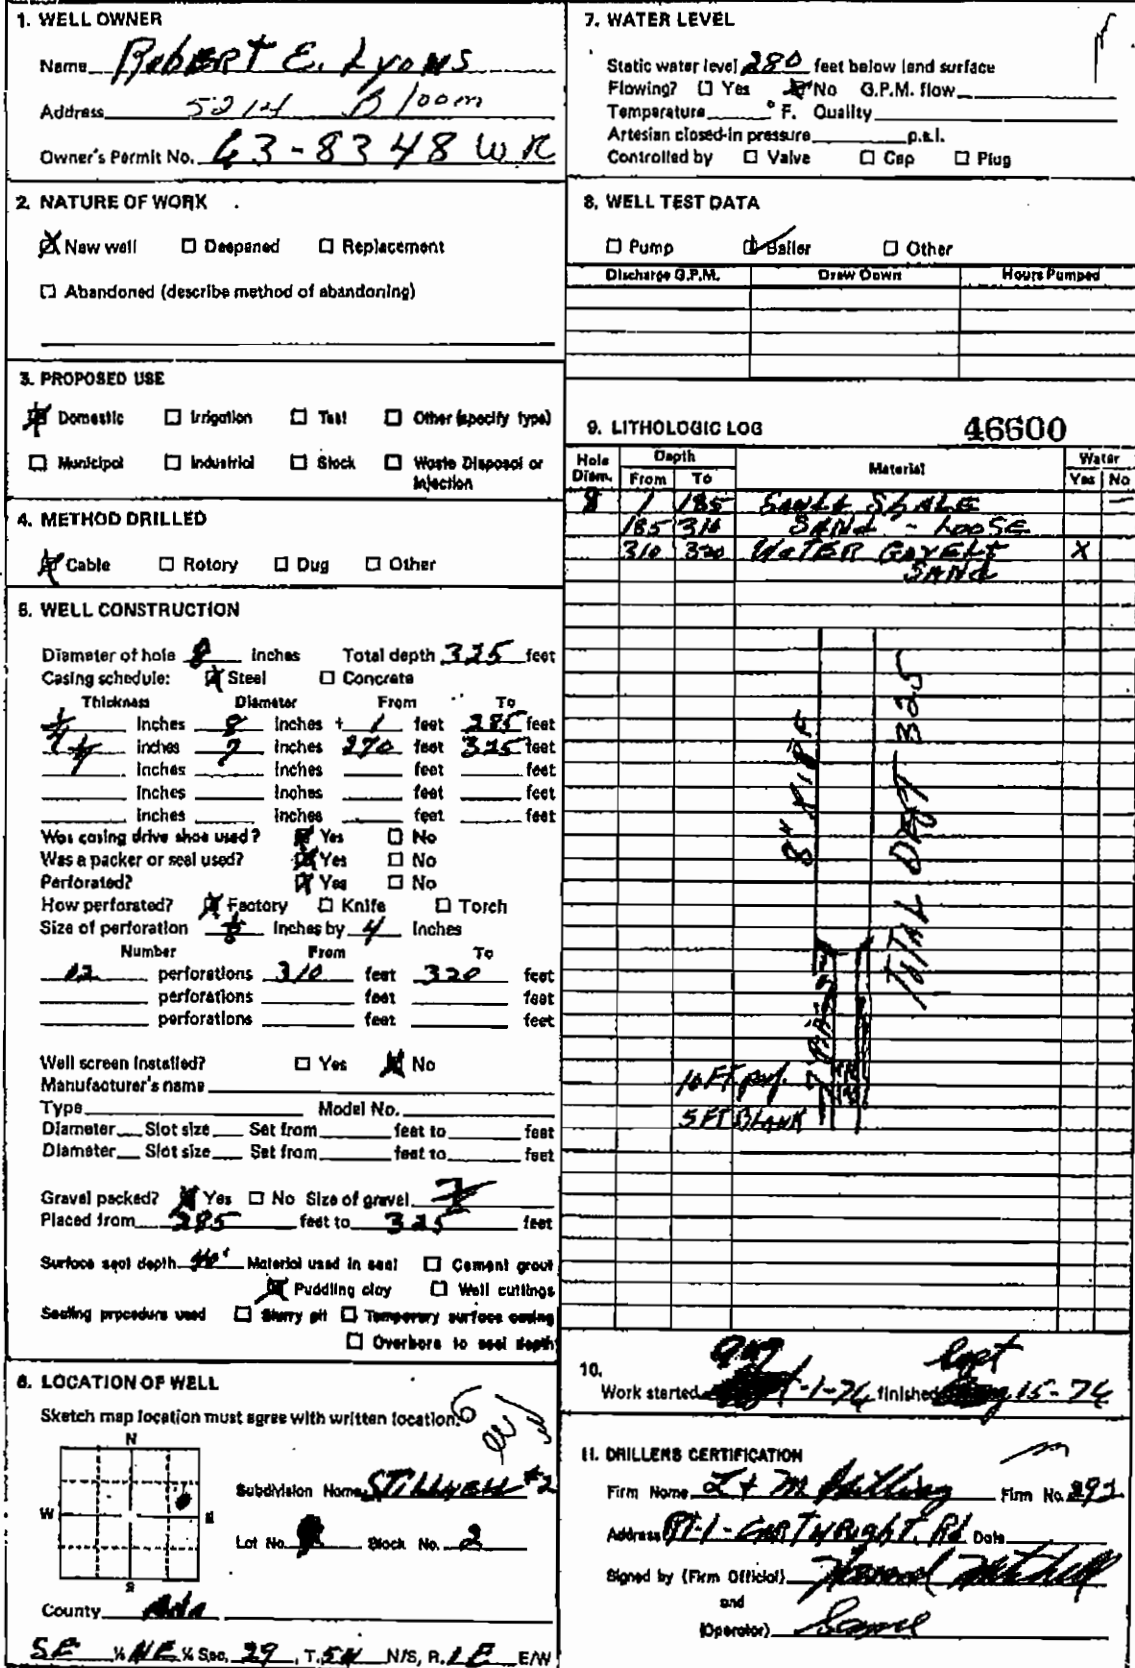 1. WELL OWNER
Name Robert E. Lyons
Address 5214 Bloom
Owner's Permit No. 63-8348 WR
2. NATURE OF WORK
New well □ Deepened □ Replacement
□ Abandoned (describe method of abandoning)
3. PROPOSED USE
Domestic □ Irrigation □ Test □ Other (specify type)
□ Municipal □ Industrial □ Stock □ Waste Disposal or Injection
4. METHOD DRILLED
Cable □ Rotory □ Dug □ Other
5. WELL CONSTRUCTION
Diameter of hole 8 inches Total depth 325 feet
Casing schedule: Steel □ Concrete
Thickness Diameter From To
1/4 inches 8 inches + 1 feet 285 feet
1/4 inches 7 inches 270 feet 325 feet
inches inches feet feet
inches inches feet feet
inches inches feet feet
Was casing drive shoe used? Yes □ No
Was a packer or seal used? Yes □ No
Perforated? Yes □ No
How perforated? Factory □ Knife □ Torch
Size of perforation inches by 4 inches
Number From To
12 perforations 310 feet 320 feet
perforations feet feet
perforations feet feet
Well screen installed? □ Yes No
Manufacturer's name
Type Model No.
Diameter Slot size Set from feet to feet
Diameter Slot size Set from feet to feet
Gravel packed? Yes □ No Size of gravel
Placed from 285 feet to 325 feet
Surface seal depth 40' Material used in seal □ Cement grout
Puddling clay □ Well cuttings
Sealing procedure used □ Slurry pit □ Temporary surface casing
□ Overbore to seal depth
6. LOCATION OF WELL
Sketch map location must agree with written location.
N
W E
S
Subdivision Name STILLWELL #2
Lot No. Block No. 2
County Ada
SE ¼ NE ¼ Sec. 29, T. 5N N/S, R. 1E E/W
7. WATER LEVEL
Static water level 280 feet below land surface
Flowing? □ Yes No G.P.M. flow
Temperature °F. Quality
Artesian closed-in pressure p.s.i.
Controlled by □ Valve □ Cap □ Plug
8. WELL TEST DATA
□ Pump Bailer □ Other
Discharge G.P.M. Draw Down Hours Pumped
9. LITHOLOGIC LOG 46600
Hole Diam. Depth Material Water
From To Yes No
8 1 185 SANdy SHALE
185 310 SANd - LOOSE
310 320 WATER GRVEL & X
SANd
8" PIPE
TOTAL DEPT 325
10 FT perf.
5 FT BLANK
10.
Work started Aug -1-76 finished Sept 15-76
11. DRILLERS CERTIFICATION
Firm Name L + M Drilling Firm No. 292
Address Rt-1-CARTWRIGHT. Rd Date
Signed by (Firm Official)
and
(Operator) Same